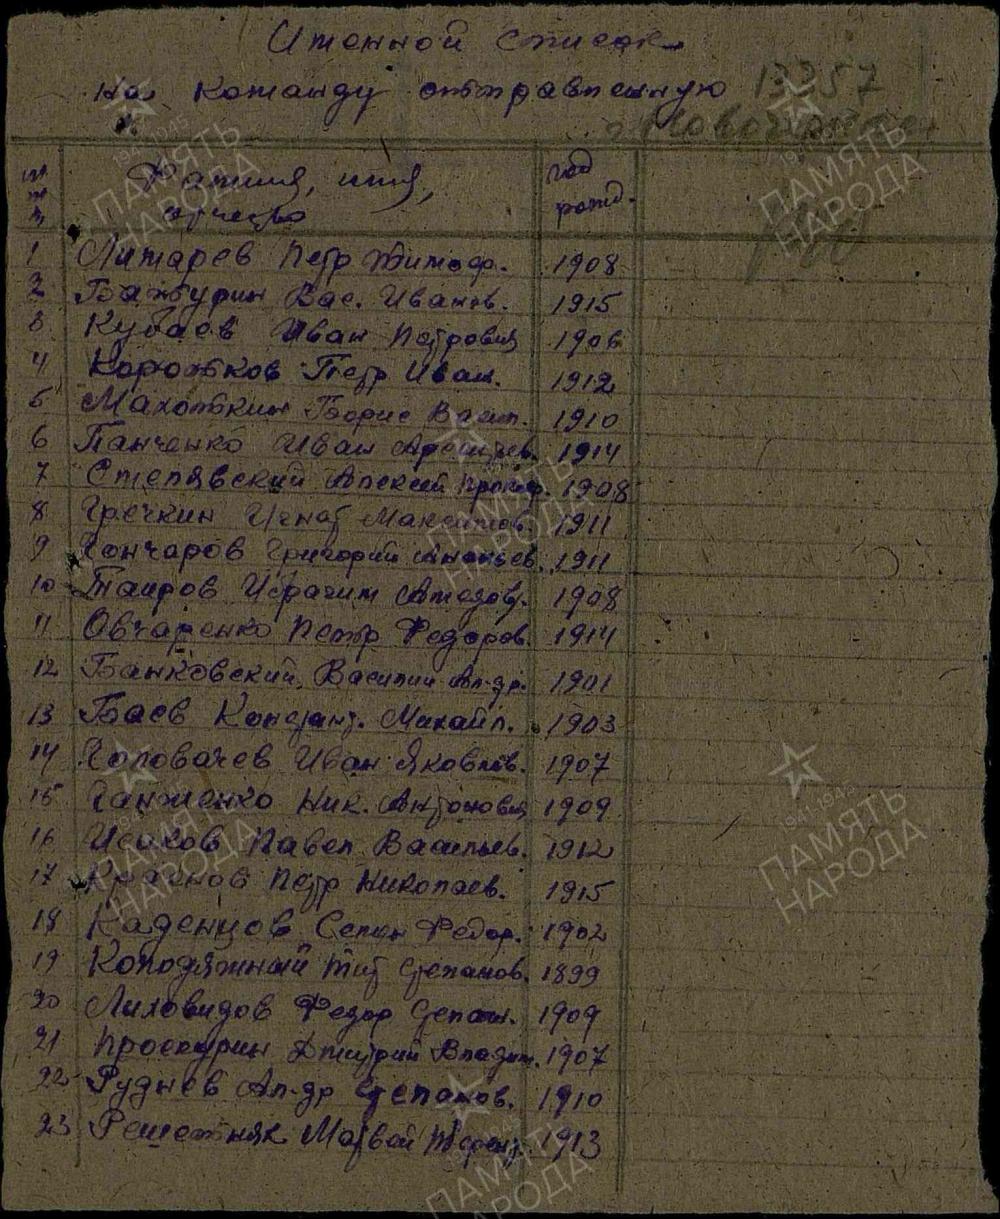 Именной список
на команду отправленную 13257
г. Новочеркасск
№ Фамилия, имя, отчество год рожд.
1 Литарев Петр Тимоф. 1908
2 Бамбурин Вас. Иванов. 1915
3 Кубаев Иван Петрович 1906
4 Коротков Петр Иван. 1912
5 Махоткин Борис Васил. 1910
6 Панченко Иван 1914
7 Степявский Алексей 1908
8 Гречкин Игнат Максимов. 1911
9 Гончаров Григорий Ананьев. 1911
10 Таиров Ибрагим 1908
11 Овчаренко Петр Федоров. 1914
12 Банковский Василий Ал-др. 1901
13 Баев Констант. Михайл. 1903
14 Головачев Иван Яковлев. 1907
15 Ганженко Ник. Антонович 1909
16 Исаков Павел Васильев. 1912
17 Краснов Петр Николаев. 1915
18 Каденцов Семен Федор. 1902
19 Колодяжный Тит Степанов. 1899
20 Лиховидов Федор Степан. 1909
21 Проскурин Дмитрий Владим. 1907
22 Руднев Ал-др Степанов. 1910
23 Решетняк Матвей Терент. 1913
ПАМЯТЬ НАРОДА
1941 1945